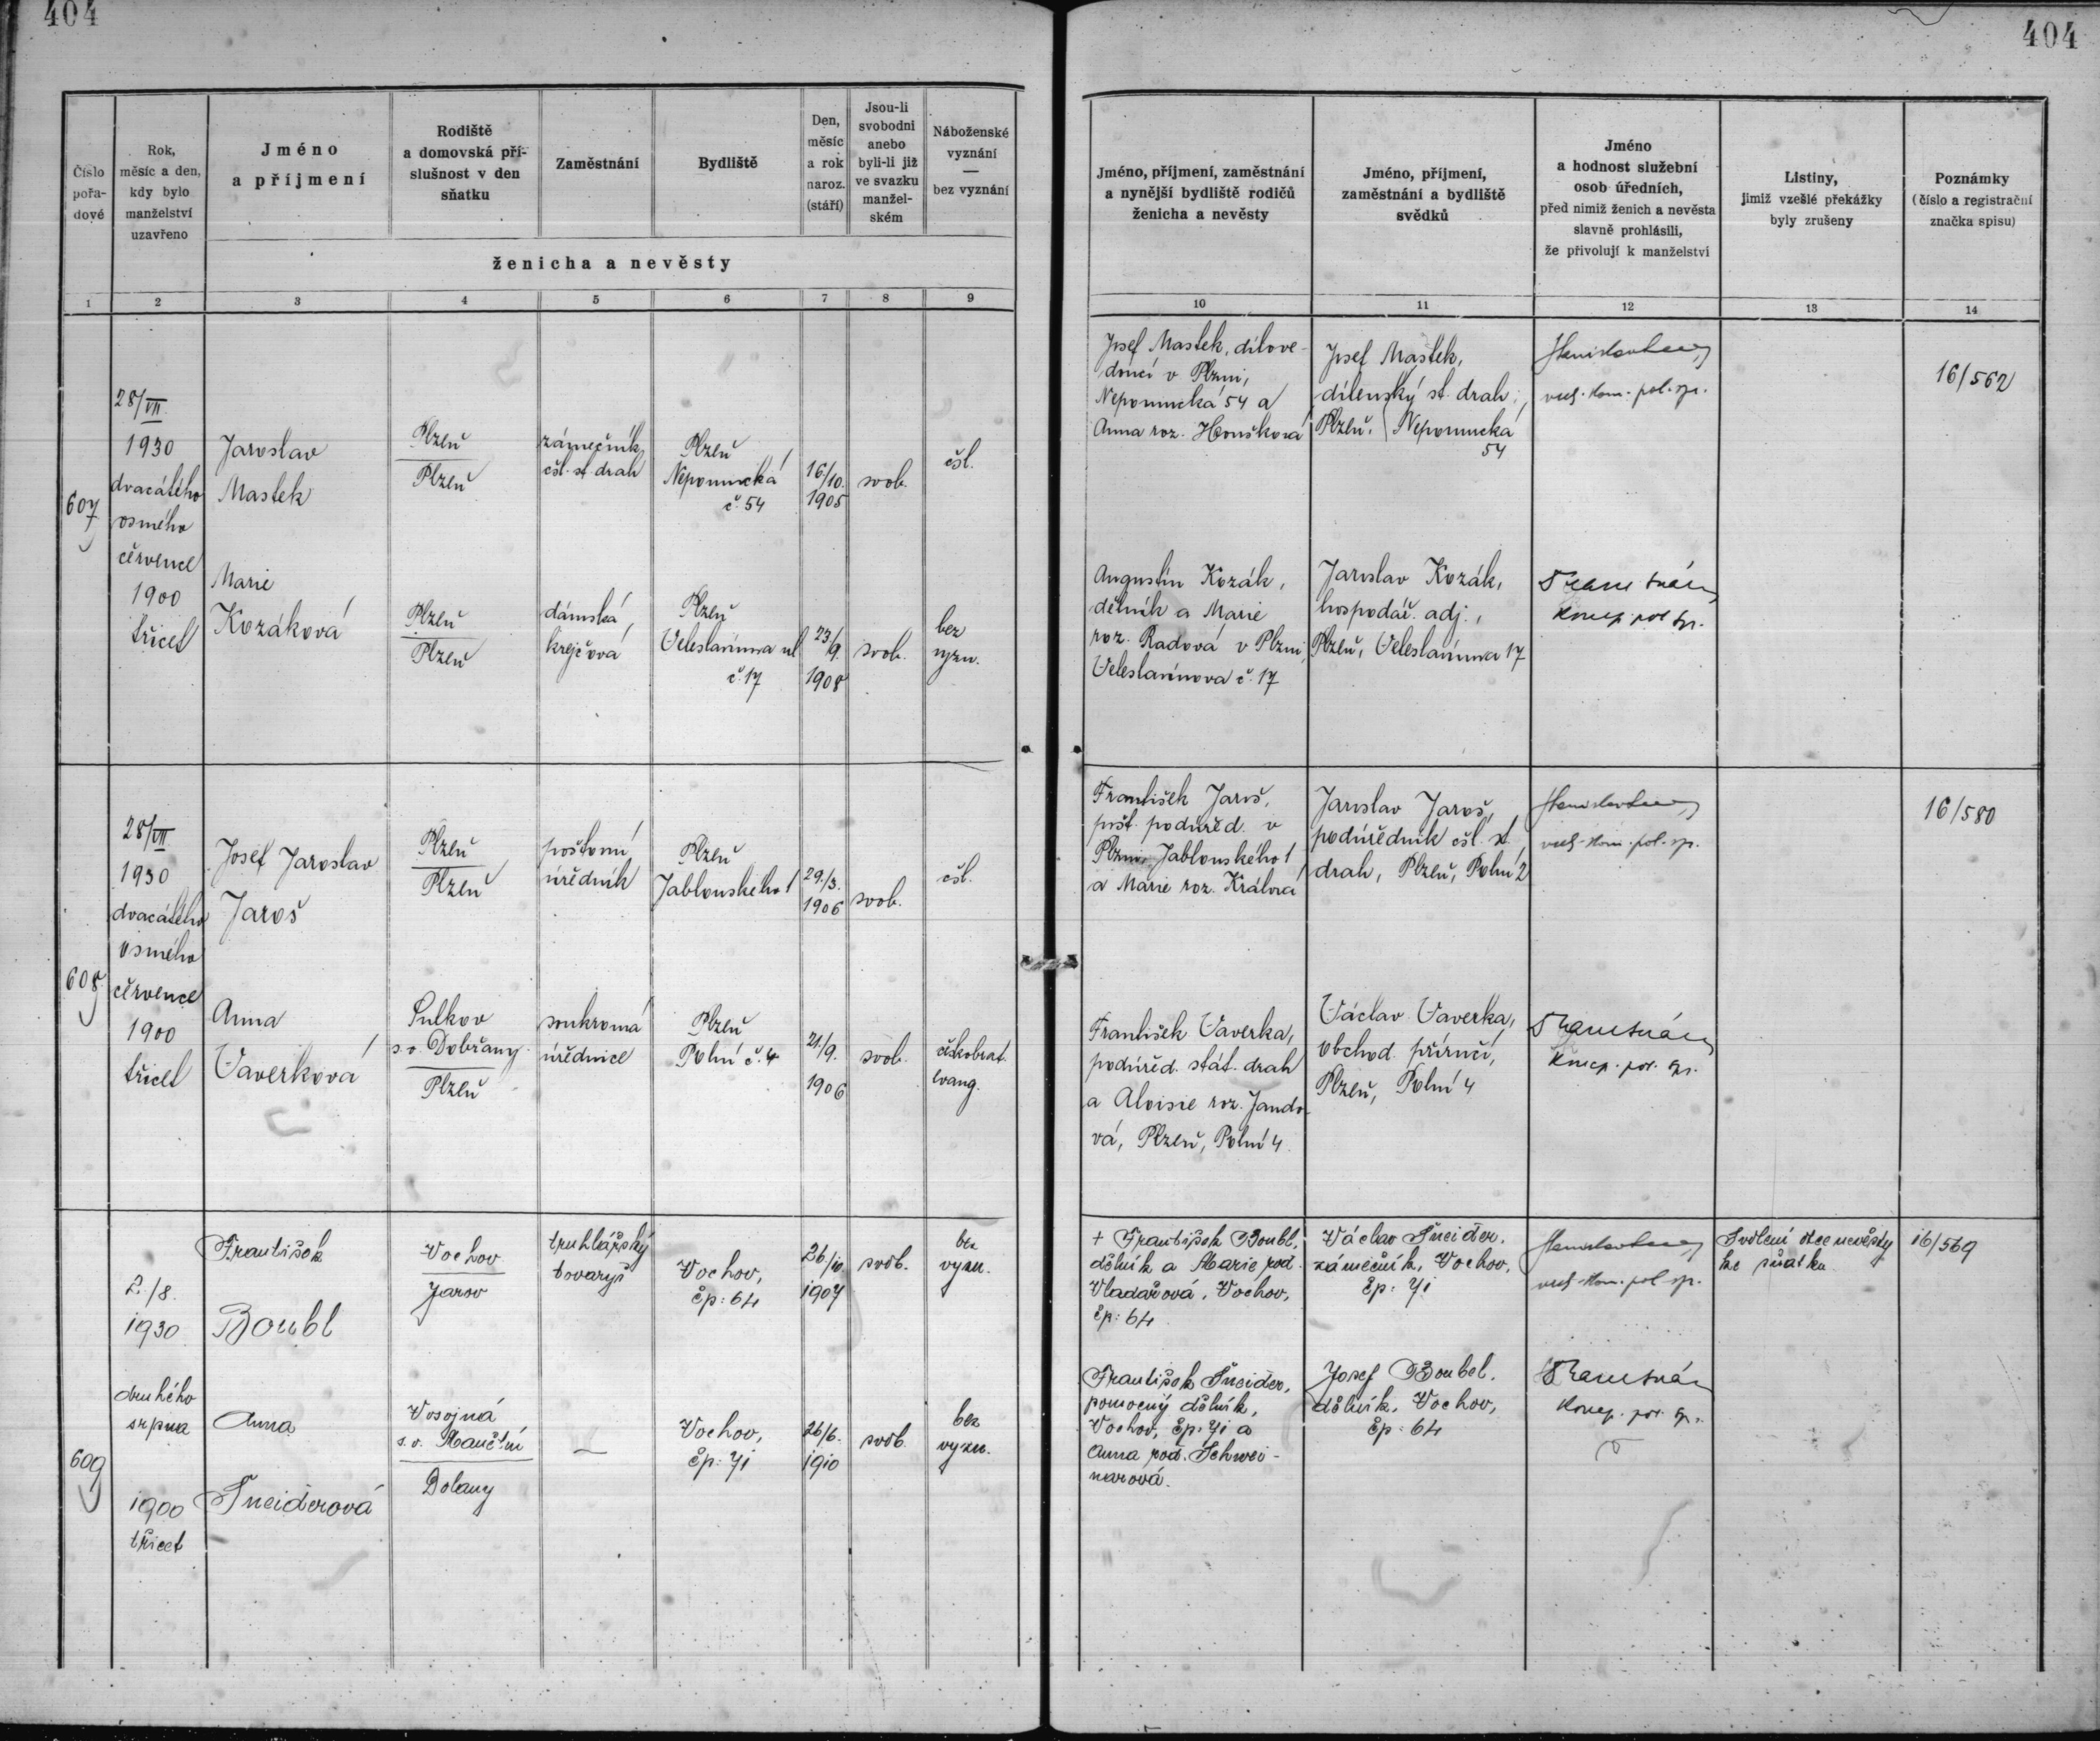 404
404
Číslo
pořa-
dové
Rok,
měsíc a den,
kdy bylo
manželství
uzavřeno
Jméno
a příjmení
Rodiště
a domovská pří-
slušnost v den
sňatku
Zaměstnání
Bydliště
Den,
měsíc
a rok
naroz.
(stáří)
Jsou-li
svobodni
anebo
byli-li již
ve svazku
manžel-
ském
Náboženské
vyznání
—
bez vyznání
ženicha a nevěsty
Jméno, příjmení, zaměstnání
a nynější bydliště rodičů
ženicha a nevěsty
Jméno, příjmení,
zaměstnání a bydliště
svědků
Jméno
a hodnost služební
osob úředních,
před nimiž ženich a nevěsta
slavně prohlásili,
že přivolují k manželství
Listiny,
jimiž vzešlé překážky
byly zrušeny
Poznámky
(číslo a registrační
značka spisu)
1 2 3 4 5 6 7 8 9
10 11 12 13 14
607
28/VII.
1930
dvacátého
osmého
července
1900
třicet
Jaroslav
Mastek
Plzeň
Plzeň
zámečník
čsl. st. drah
Plzeň
Nepomucká
č. 54
16/10.
1905
svob.
čsl.
Josef Mastek, dílove-
doucí v Plzni,
Nepomucká 54 a
Anna roz. Houšková
Josef Mastek,
dílenský st. drah,
Plzeň, Nepomucká
54
vrch. kom. pol. spr.
16/562
Marie
Kozáková
Plzeň
Plzeň
dámská
krejčová
Plzeň
Veleslavínova ul.
č. 17
23/9.
1908
svob.
bez
vyzn.
Augustin Kozák,
dělník a Marie
roz. Radová v Plzni,
Veleslavínova č. 17
Jaroslav Kozák,
hospodář. adj.,
Plzeň, Veleslavínova 17
koncip. pol. spr.
608
28/VII.
1930
dvacátého
osmého
července
1900
třicet
Josef Jaroslav
Jaroš
Plzeň
Plzeň
poštovní
úředník
Plzeň
Jablonského 1
29./3.
1906
svob.
čsl.
František Jaroš,
pošt. podúřed. v
Plzni, Jablonského 1
a Marie roz. Králová
Jaroslav Jaroš,
podúředník čsl. st.
drah, Plzeň, Polní 2
vrch. kom. pol. spr.
16/580
Anna
Vaverková
Sulkov
s. o. Dobřany
Plzeň
soukromá
úřednice
Plzeň
Polní č. 4
21/9.
1906
svob.
českobrat.
evang.
František Vaverka,
podúřed. stát. drah
a Aloisie roz. Jando-
vá, Plzeň, Polní 4.
Václav Vaverka,
obchod. příručí,
Plzeň, Polní 4
koncip. pol. spr.
609
2./8.
1930
druhého
srpna
1900
třicet
František
Boubl
Vochov
Jarov
truhlářský
tovaryš
Vochov,
čp: 64
26/10
1907
svob.
bez
vyzn.
+ František Boubl,
dělník a Marie rod.
Vladařová, Vochov,
čp: 64
Václav Šneider,
zámečník, Vochov,
čp: 71
vrch. kom. pol. spr.
Svolení otce nevěsty
ke sňatku
16/569
Anna
Šneiderová
s. o.
Dolany
—
Vochov,
čp: 71
26/6.
1910
svob.
bez
vyzn.
František Šneider,
pomocný dělník,
Vochov, čp: 71 a
Anna rod. Schwei-
narová.
Josef Boubel,
dělník, Vochov,
čp: 64
koncip. pol. spr.